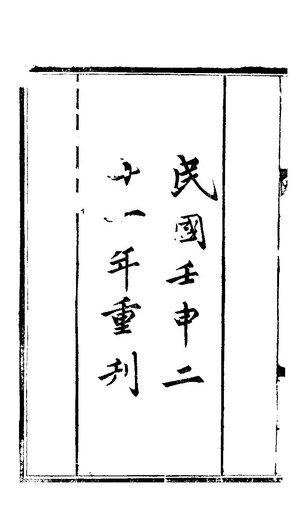 民國壬申二
十一年重刋